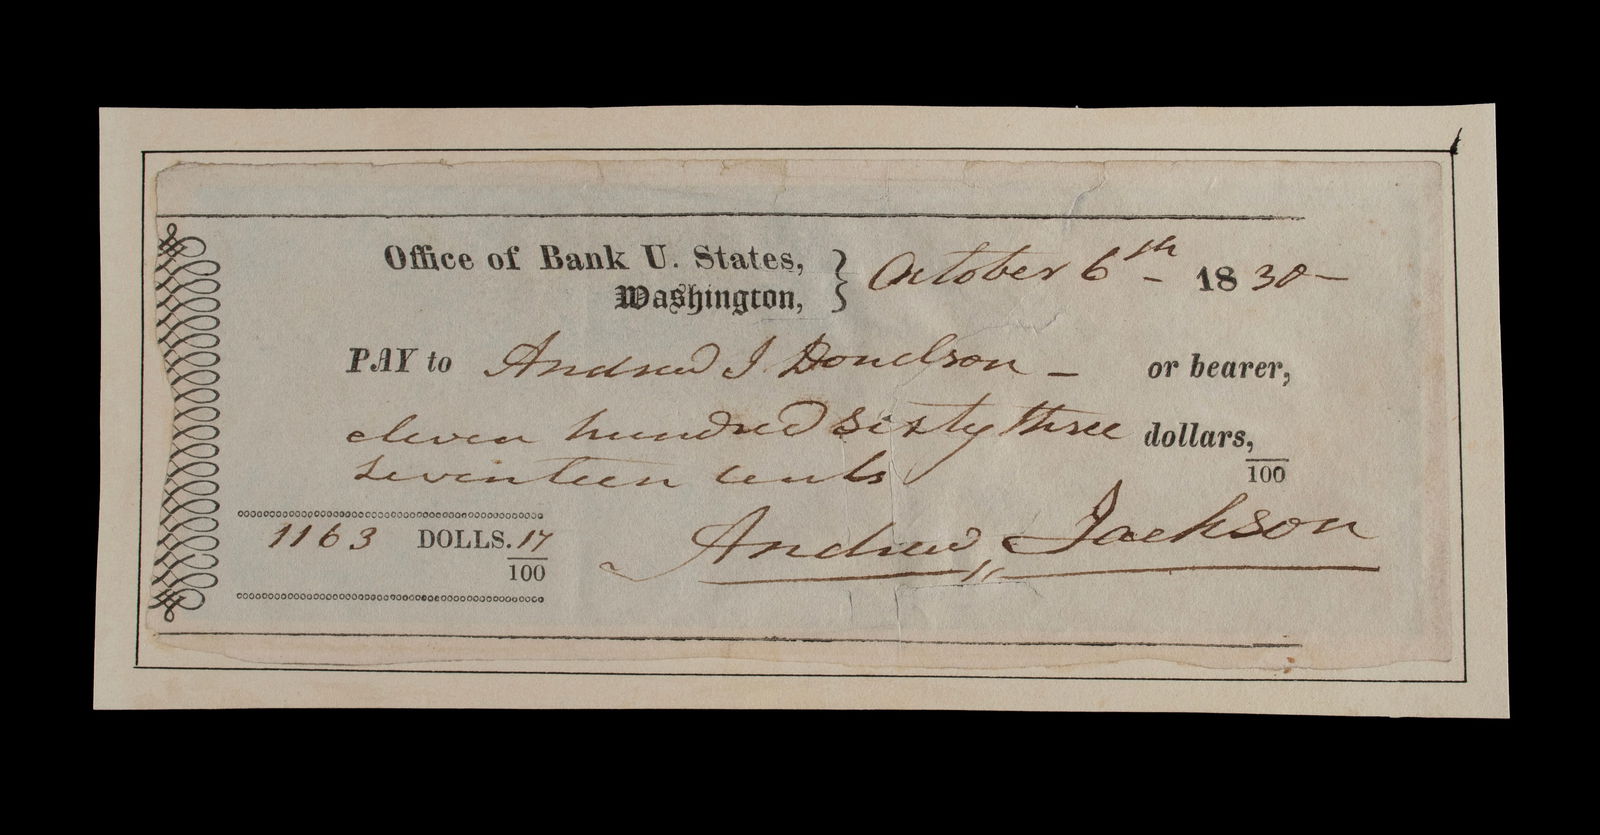 Office of Bank U. States, } October 6th 1830
Washington,
PAY to Andrew J Donelson – or bearer,
eleven hundred sixty three dollars,
seventeen cents /100
1163 DOLLS. 17/100
Andrew Jackson